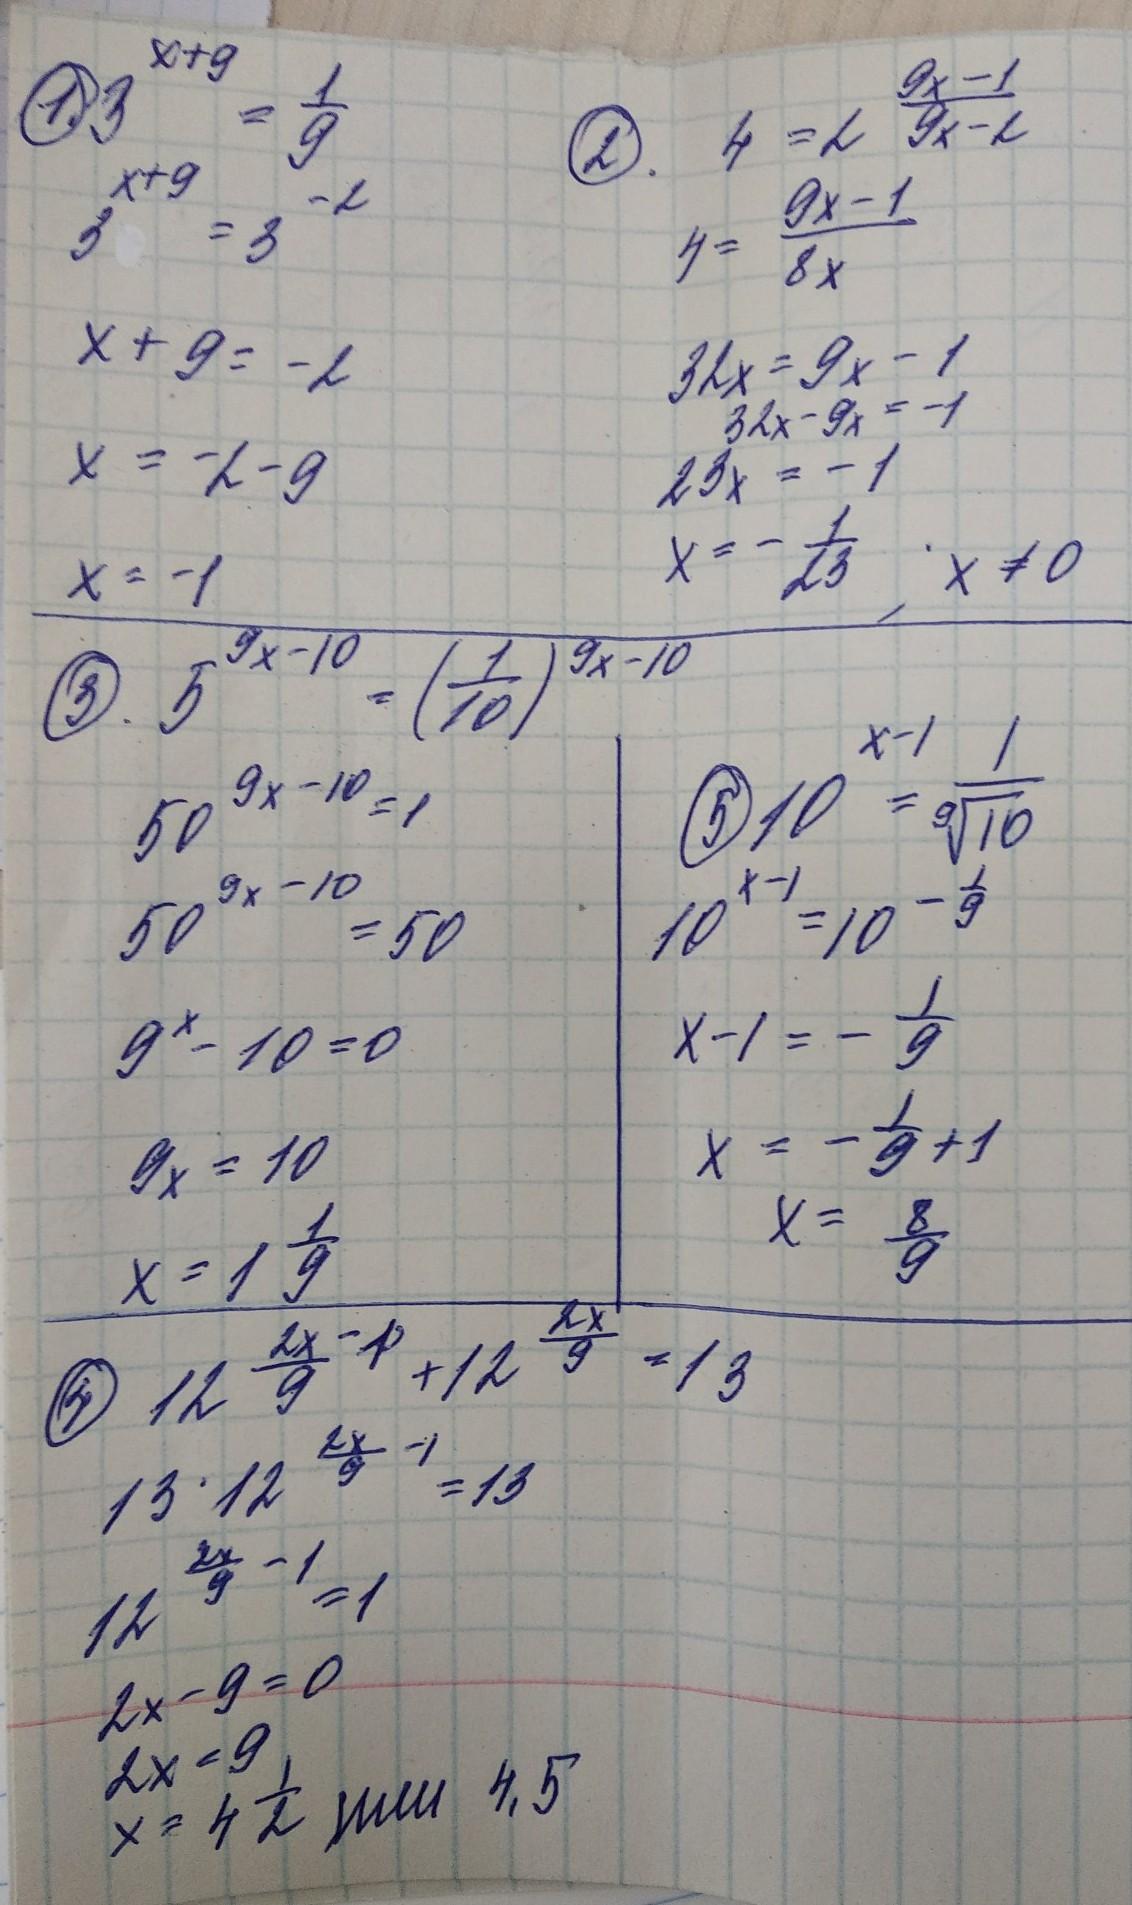 ① 3^(x+9) = 1/9
3^(x+9) = 3^(-2)
x + 9 = -2
x = -2 - 9
x = -1
②. 4 = 2^((9x-1)/(9x-2))
4 = (9x-1)/(8x)
32x = 9x - 1
32x - 9x = -1
23x = -1
x = -1/23, x ≠ 0
③. 5^(9x-10) = (1/10)^(9x-10)
50^(9x-10) = 1
50^(9x-10) = 50
9^x - 10 = 0
9x = 10
x = 1 1/9
⑤ 10^(x-1) = 1/⁹√10
10^(x-1) = 10^(-1/9)
x - 1 = -1/9
x = -1/9 + 1
x = 8/9
④ 12^(2x/9 - 1) + 12^(2x/9) = 13
13 · 12^(2x/9 - 1) = 13
12^(2x/9 - 1) = 1
2x - 9 = 0
2x = 9
x = 4 1/2 или 4,5